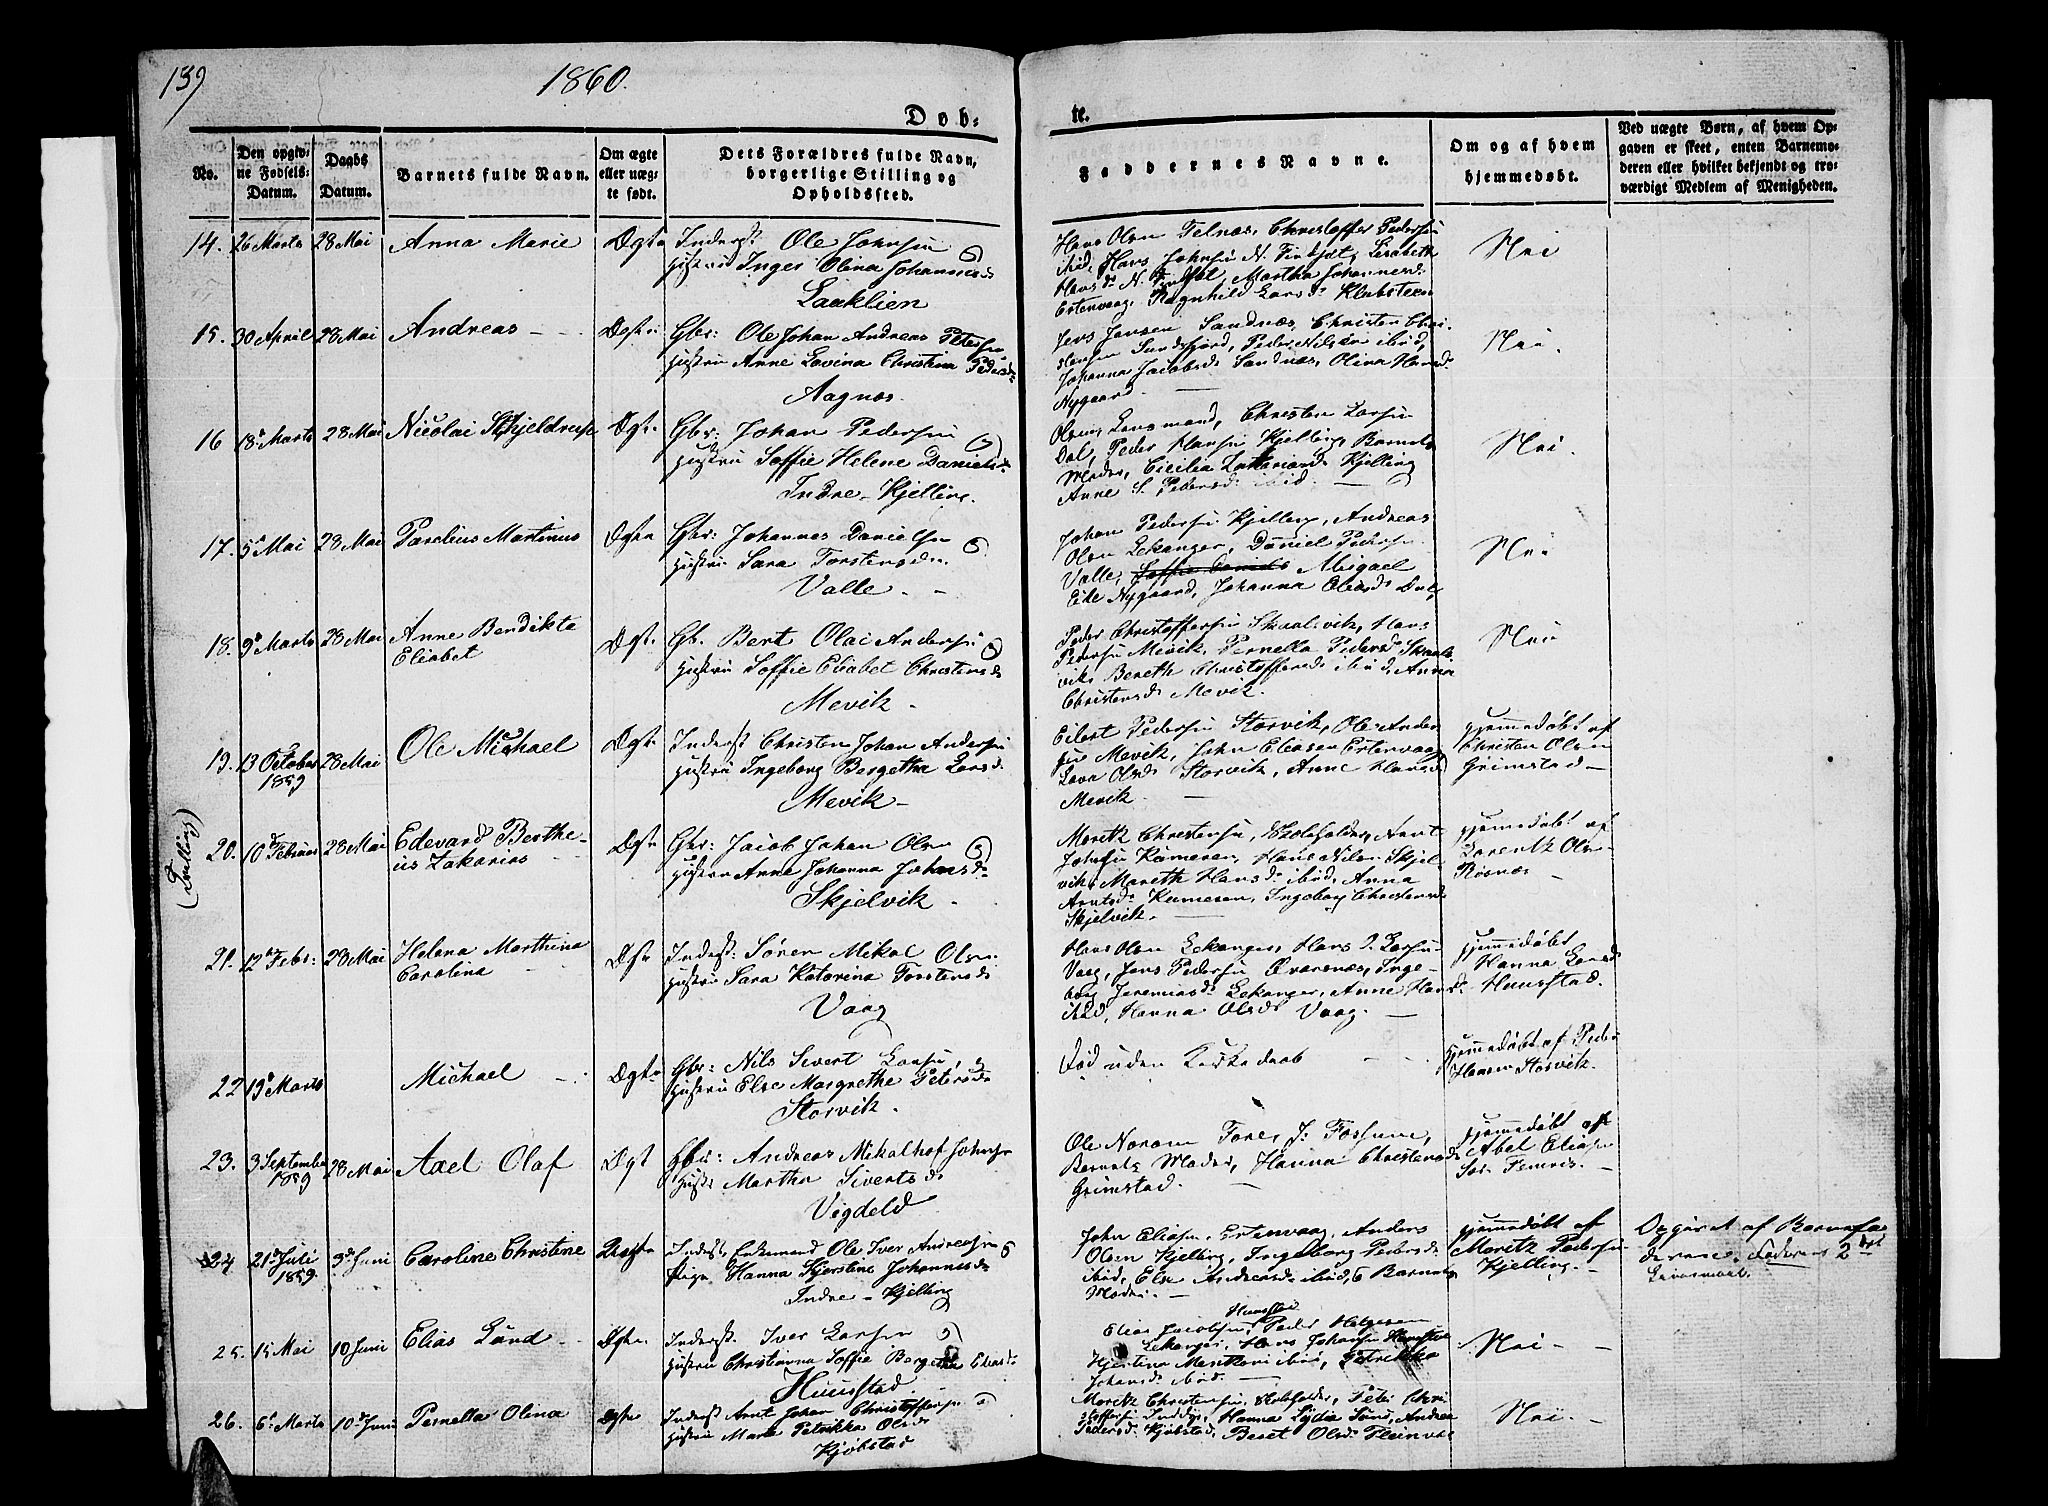 139
1860.
Døb=
te.
No.
Den opgiv=
ne Fødsels=
Datum.
Daabs
Datum.
Barnets fulde Navn.
Om ægte
eller uæg=
te født.
Dets Forældres fulde Navn,
borgerlige Stilling og
Opholdssted.
Faddernes Navne.
Om og af hvem
hjemmedøbt.
Ved uægte Børn, af hvem Op=
gaven er skeet, enten Barnemo=
deren eller hvilket bekjendt og tro=
værdigt Medlem af Menigheden.
14. 26 Marts 28 Mai Anna Marie Ægte Inderst Ole Johnsen
Hustru Inger Olina Johannesd
Laaklien
Hans Olsen Telnæs, Christoffer Pedersen
ibid, Hans Johnsen N. Finkjøt, Lisabeth
Hansd. N. Martha Johannesd.
Estenvaag, Ragnhild Larsd. Klubsteen
Nei
15. 30 April 28 Mai Andreas Ægte Gbr: Ole Johan Andreas Petersen
Hustru Anne Lovina Christina Pedersd.
Aagnæs.
Jens Jensen Sandnæs, Christen Chri-
stensen Sundsfjord, Peder Nilsen ibid,
Johanna Jacobsd Sandnæs, Olina Hansd.
Nygaard.
Nei.
16 18de Marts 28 Mai Nicolai Skjeldrup Ægte Gbr: Johan Pedersen
Hustru Soffie Helene Danielsd.
Indre-Kjelling.
Olsen, Lensmand, Christen Larsen
Dal, Peder Hansen Kjelling, Barnets
Moder, Cicilia Zakariasd. Kjelling
Anne S. Pedersd. ibid.
Nei.
17. 5de Mai 28 Mai Parelius Martinus Ægte Gbr: Johannes Danielsen
Hustru Sara Torstensd.
Valle.
Johan Pedersen Kjelling, Andreas
Olsen Lekanger, Daniel Pedersen
Valle, Soffie Daniels Abigael
Eile Nygaard, Johanna Oliasd. Dal,
Nei
18. 9de Marts 28 Mai Anne Bendikte
Elisabet
Ægte Gb. Bert Olai Andersen
Hustru Soffie Elisabet Christensd
Mevik.
Peder Christoffersen Skaalsvik, Hans
Pedersen Mevik, Pernella Pedersd Skaals
vik, Bereth Christoffersd. ibid, Anna
Christensd. Mevik.
Nei
19. 13 October
1859
28 Mai Ole Michael Ægte Inderst Christen Johan Andersen
Hustru Ingeborg Bergetha Larsd.
Mevik
Eilert Pedersen Storvik, Ole Ander
sen Mevik, John Eliasen Estenvaag
Lava Olsd. Storvik, Anne Hansd
Mevik.
Hjemmedøbt af
Christen Olsen
Grimstad
(Tvilling)
20. 10de Februar 28 Mai Edevard Berthe-
us Zakarias
Ægte Gbr: Jacob Johan Olsen
Hustru Anne Johanna Johnsd.
Skjelvik.
Moritz Christensen, Skoleholder, Arnt
Johnsen Kumesen, Hans Nilsen Skjel
vik, Mareth Hansd. ibid, Anna
Arntsd. Kumesen, Ingeborg Christensd
Skjelvik.
Hjemmedøbt af
Lorentz Olsen
Røsnæs
21. 12te Febr: 28 Mai Helena Marthina
Carolina
Ægte Inderst: Sören Mikal Olsen
Hustru Sara Katorina Torstensd.
Vaag
Hans Olsen Lekanger, Hans P. Larsen
Vaag, Jens Pedersen Qvarsnæs, Inge-
borg Jeremiasd. Lekanger, Anne Hansd.
ibid, Hanna Olsd. Vaag.
Hjemmedøbt
Hanna Larsd
Hunstad.
22 19de Marts Michael Ægte Gbr: Nils Sivert Larsen,
Hustru Else Margrethe Petersd.
Storvik.
Død uden Kirkedaab
Hjemmedøbt af Peder
Hansen Storvik.
23. 3 September
1859
28 Mai Axel Olaf Ægt Gbr: Andreas Mikalhof Johnsen
Hust: Martha Sivertsd.
Vigdeld
Ole Norum Fore, J: Fossum,
Barnets Moder, Hanna Christensd.
Grimstad.
Hjemmedøbt af
Abel Eliasen
Sör Femris.
24 21de Juli
1859.
3de Juni Caroline Christine Uægte Inderst, Enkemand Ole Iver Andreasen
Pige Hanna Kjerstine Johannesd.
Indre-Kjelling
John Eliasen, Estenvaag, Anders
Olsen Kjelling, Ingeborg Pedersd.
ibid, Else Andreasd. ibid, Barnets
Moder.
Hjemmedøbt af
Moritz Pedersen
Kjelling.
Opgivet af Barnefa
derene. Faderens 2det
Leiermaal.
25. 15 Mai 10 Juni Elias Lünd Ægte Inderst. Iver Larsen
Hustru Christianna Soffie Bergetha Eliasd.
Hunstad.
Hunstad
Elias Jacobsen, Peder Helgesen
Lekanger, Hans Johansen Hunstad
Hjertina Mentsoni ibid, Petrikka
Johansd. ibid.
Nei
26. 6te Marts 10de Juni Pernella Olina Ægte Inderst Arnt Johan Christoffersen
Hustru Marie Petrikka Olsd.
Kjöbstad
Moritz Christensen, Skoleholder, Peter Chri
stoffersen Inddyr, Hanna Lydia Lünd, Andrea
Pedersd. Kjöbstad, Beret Olsd. Fleinvær
Nei.